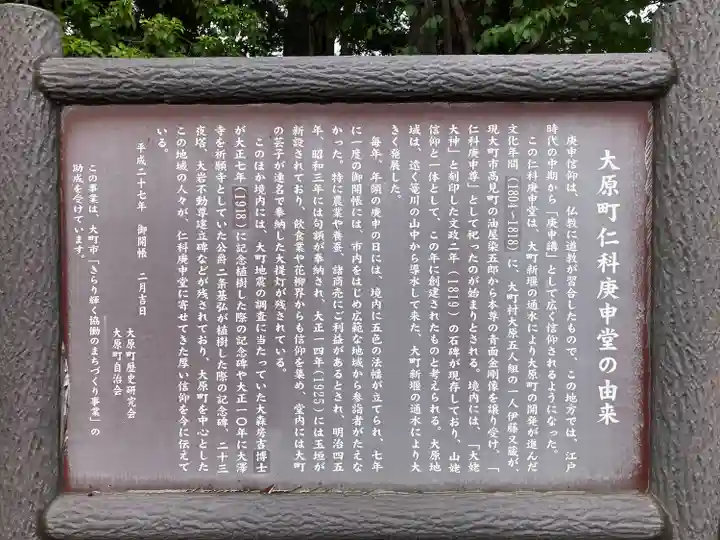 大原町仁科庚申堂の由来
庚申信仰は、仏教に道教が習合したもので、この地方では、江戸
時代の中期から「庚申講」として広く信仰されるようになった。
この仁科庚申堂は、大町新堰の通水により大原町の開発が進んだ
文化年間(1804~1818)に、大町村大原五人組の一人伊藤又蔵が、
現大町市高見町の油屋染五郎から本尊の青面金剛像を譲り受け、「
仁科庚申尊」として祀ったのが始まりとされる。境内には、「大姥
大神」と刻印した文政二年(1819)の石碑が現存しており、山姥
信仰と一体として、この年に創建されたものと考えられる。大原地
域は、遠く篭川の山中から導水して来た、大町新堰の通水により大
きく発展した。
毎年、年頭の庚申の日には、境内に五色の法幡が立てられ、七年
に一度の御開帳には、市内をはじめ広範な地域から参詣者がたえな
かった。特に農業や養蚕、諸商売にご利益があるとされ、明治四五
年、昭和三年には句額が奉納され、大正一四年(1925)には玉垣が
新設されており、飲食業や花柳界からも信仰を集め、堂内には大町
の芸子が連名で奉納した大提灯が残されている。
このほか境内には、大町地震の調査に当たっていた大森房吉博士
が大正七年(1918)に記念植樹した際の記念碑や大正一〇年に大澤
寺を祈願寺としていた公爵二条基弘が植樹した際の記念碑、二十三
夜塔、大岩不動尊建立碑などが残されており、大原町を中心とした
この地域の人々が、仁科庚申堂に寄せてきた厚い信仰を今に伝えて
いる。
平成二十七年 御開帳 二月吉日
大原町歴史研究会
大原町自治会
この事業は、大町市「きらり輝く協働のまちづくり事業」の
助成を受けています。